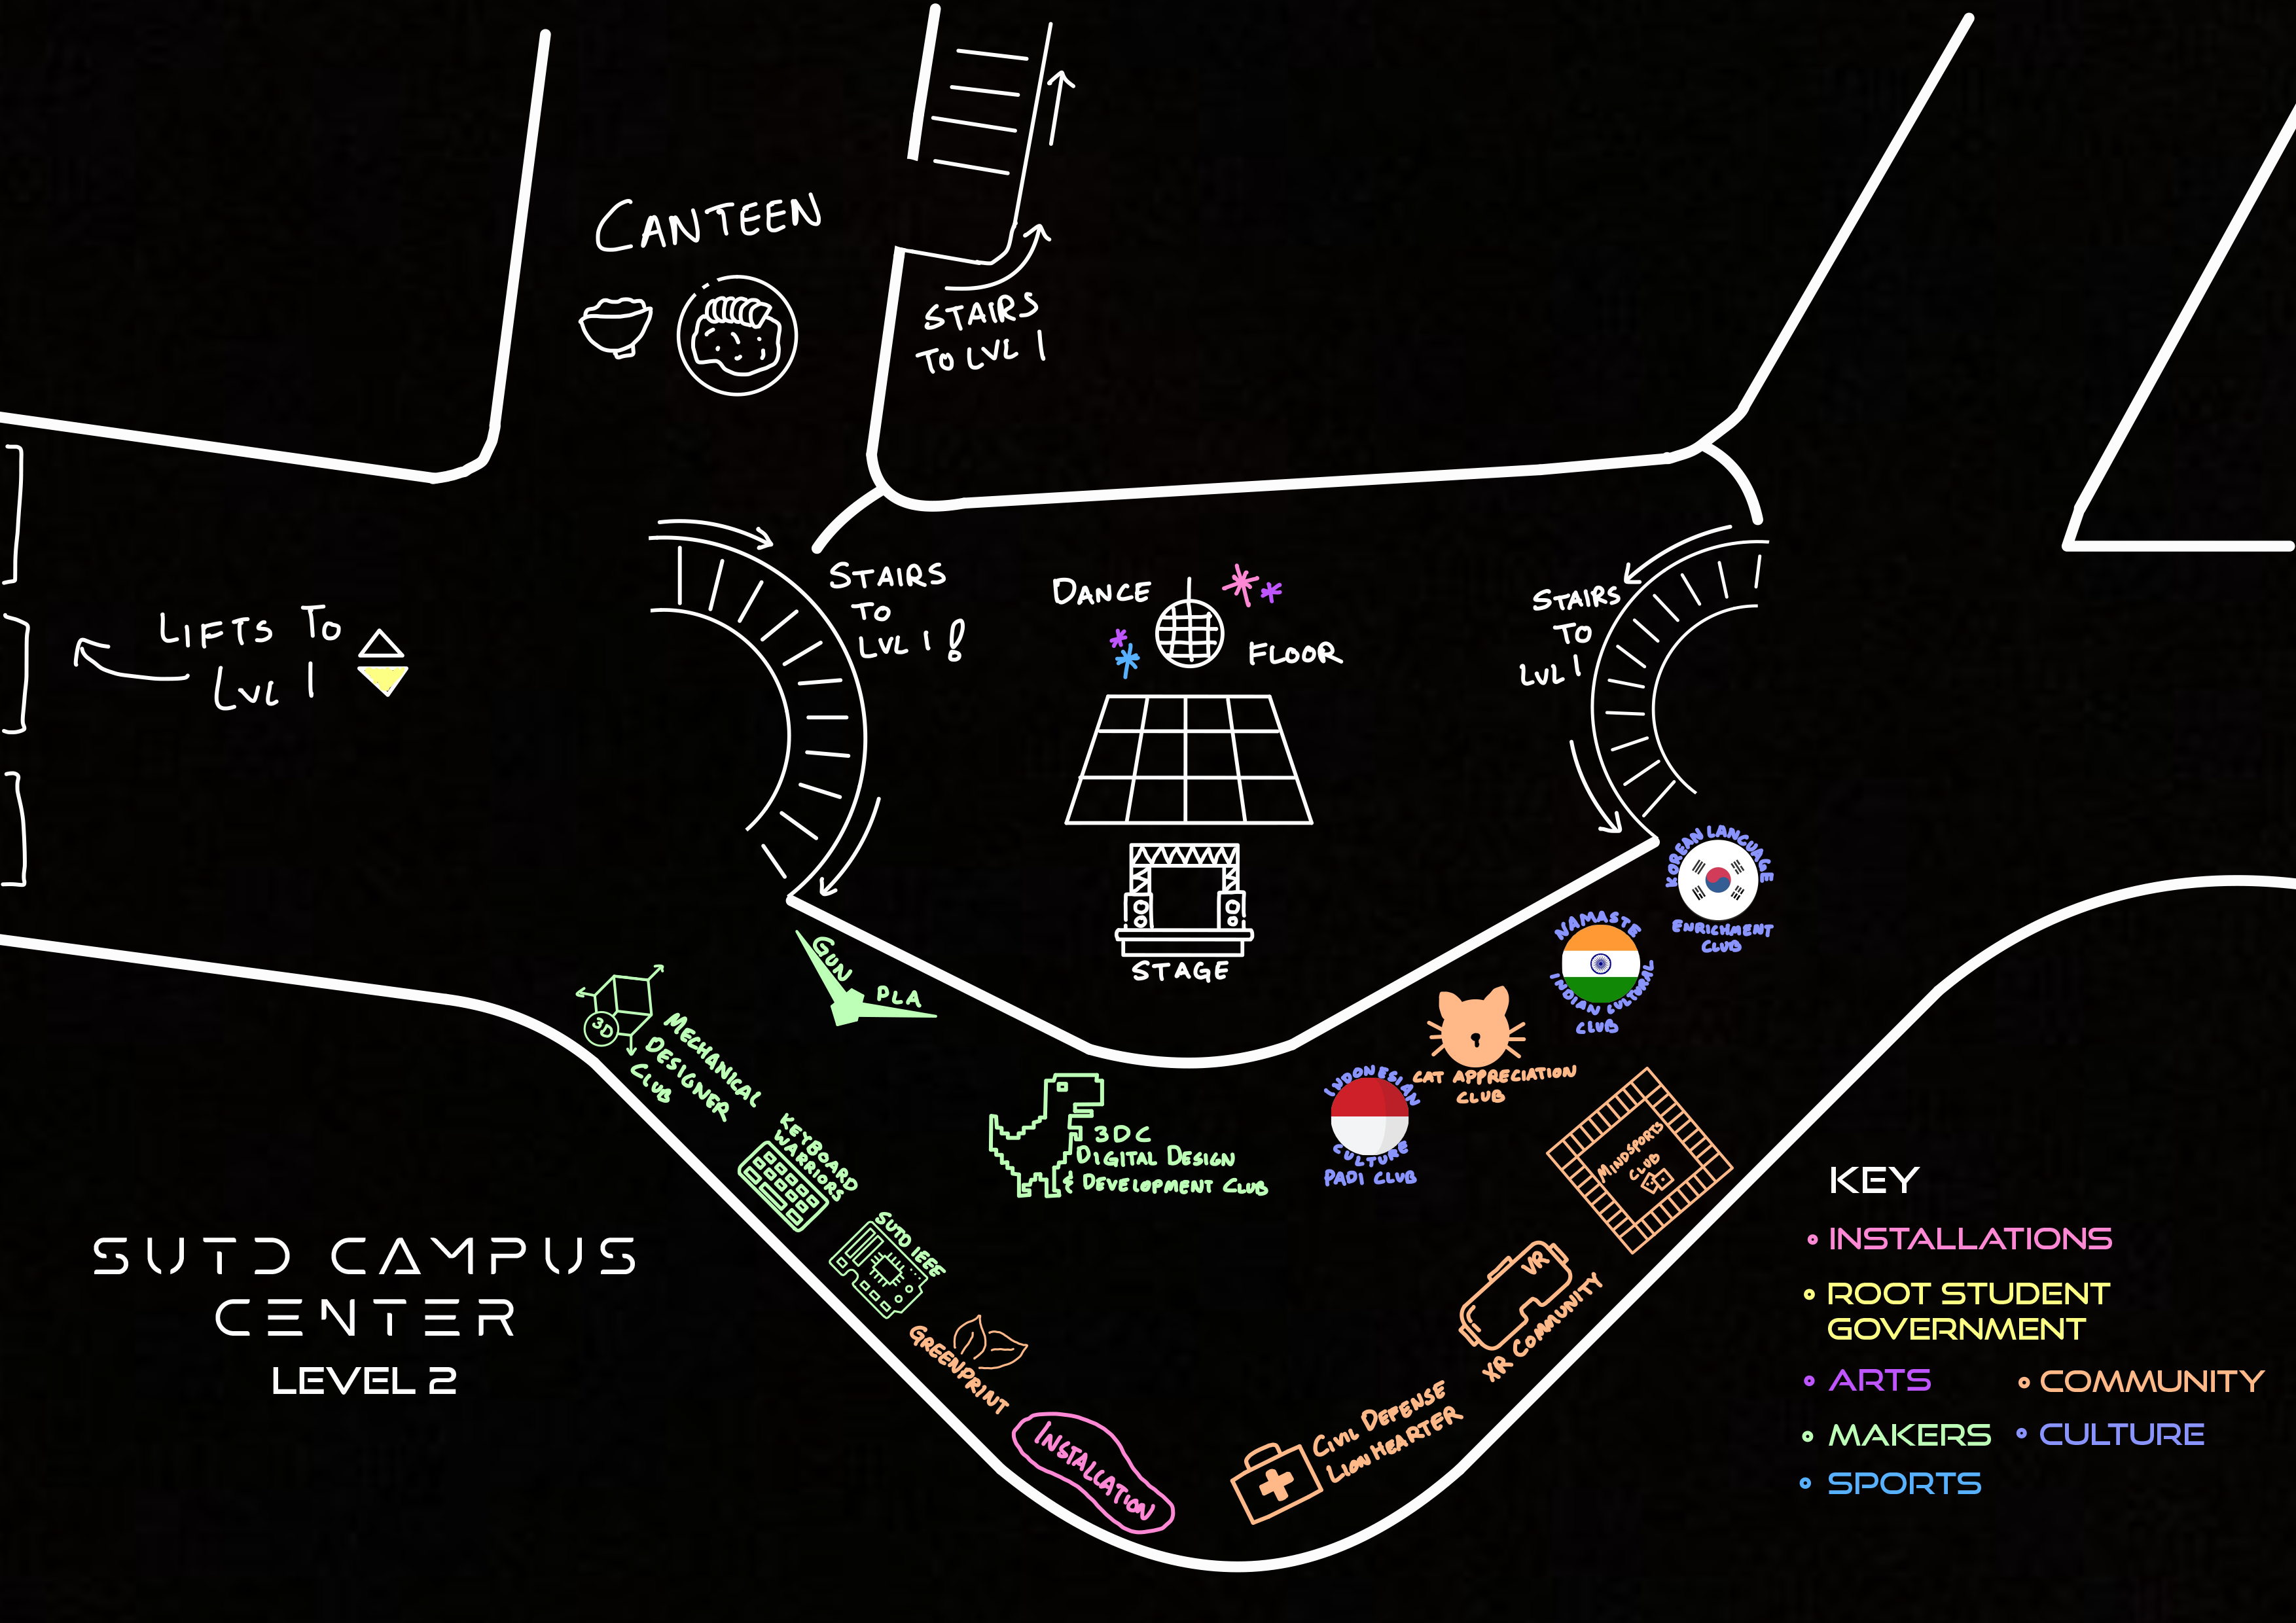 CANTEEN
STAIRS
TO LVL 1
LIFTS TO
LVL 1
STAIRS
TO
LVL 1 !
DANCE
FLOOR
STAIRS
TO
LVL 1
STAGE
KOREAN LANGUAGE
ENRICHMENT
CLUB
NAMASTE
INDIAN CULTURAL
CLUB
CAT APPRECIATION
CLUB
INDONESIAN
CULTURE
PADI CLUB
GUN
PLA
3D
MECHANICAL
DESIGNER
CLUB
KEYBOARD
WARRIORS
SUTD IEEE
3DC
DIGITAL DESIGN
& DEVELOPMENT CLUB
MINDSPORTS
CLUB
VR
XR COMMUNITY
GREENPRINT
INSTALLATION
CIVIL DEFENSE
LIONHEARTER
SUTD CAMPUS
CENTER
LEVEL 2
KEY
INSTALLATIONS
ROOT STUDENT
GOVERNMENT
ARTS
COMMUNITY
MAKERS
CULTURE
SPORTS